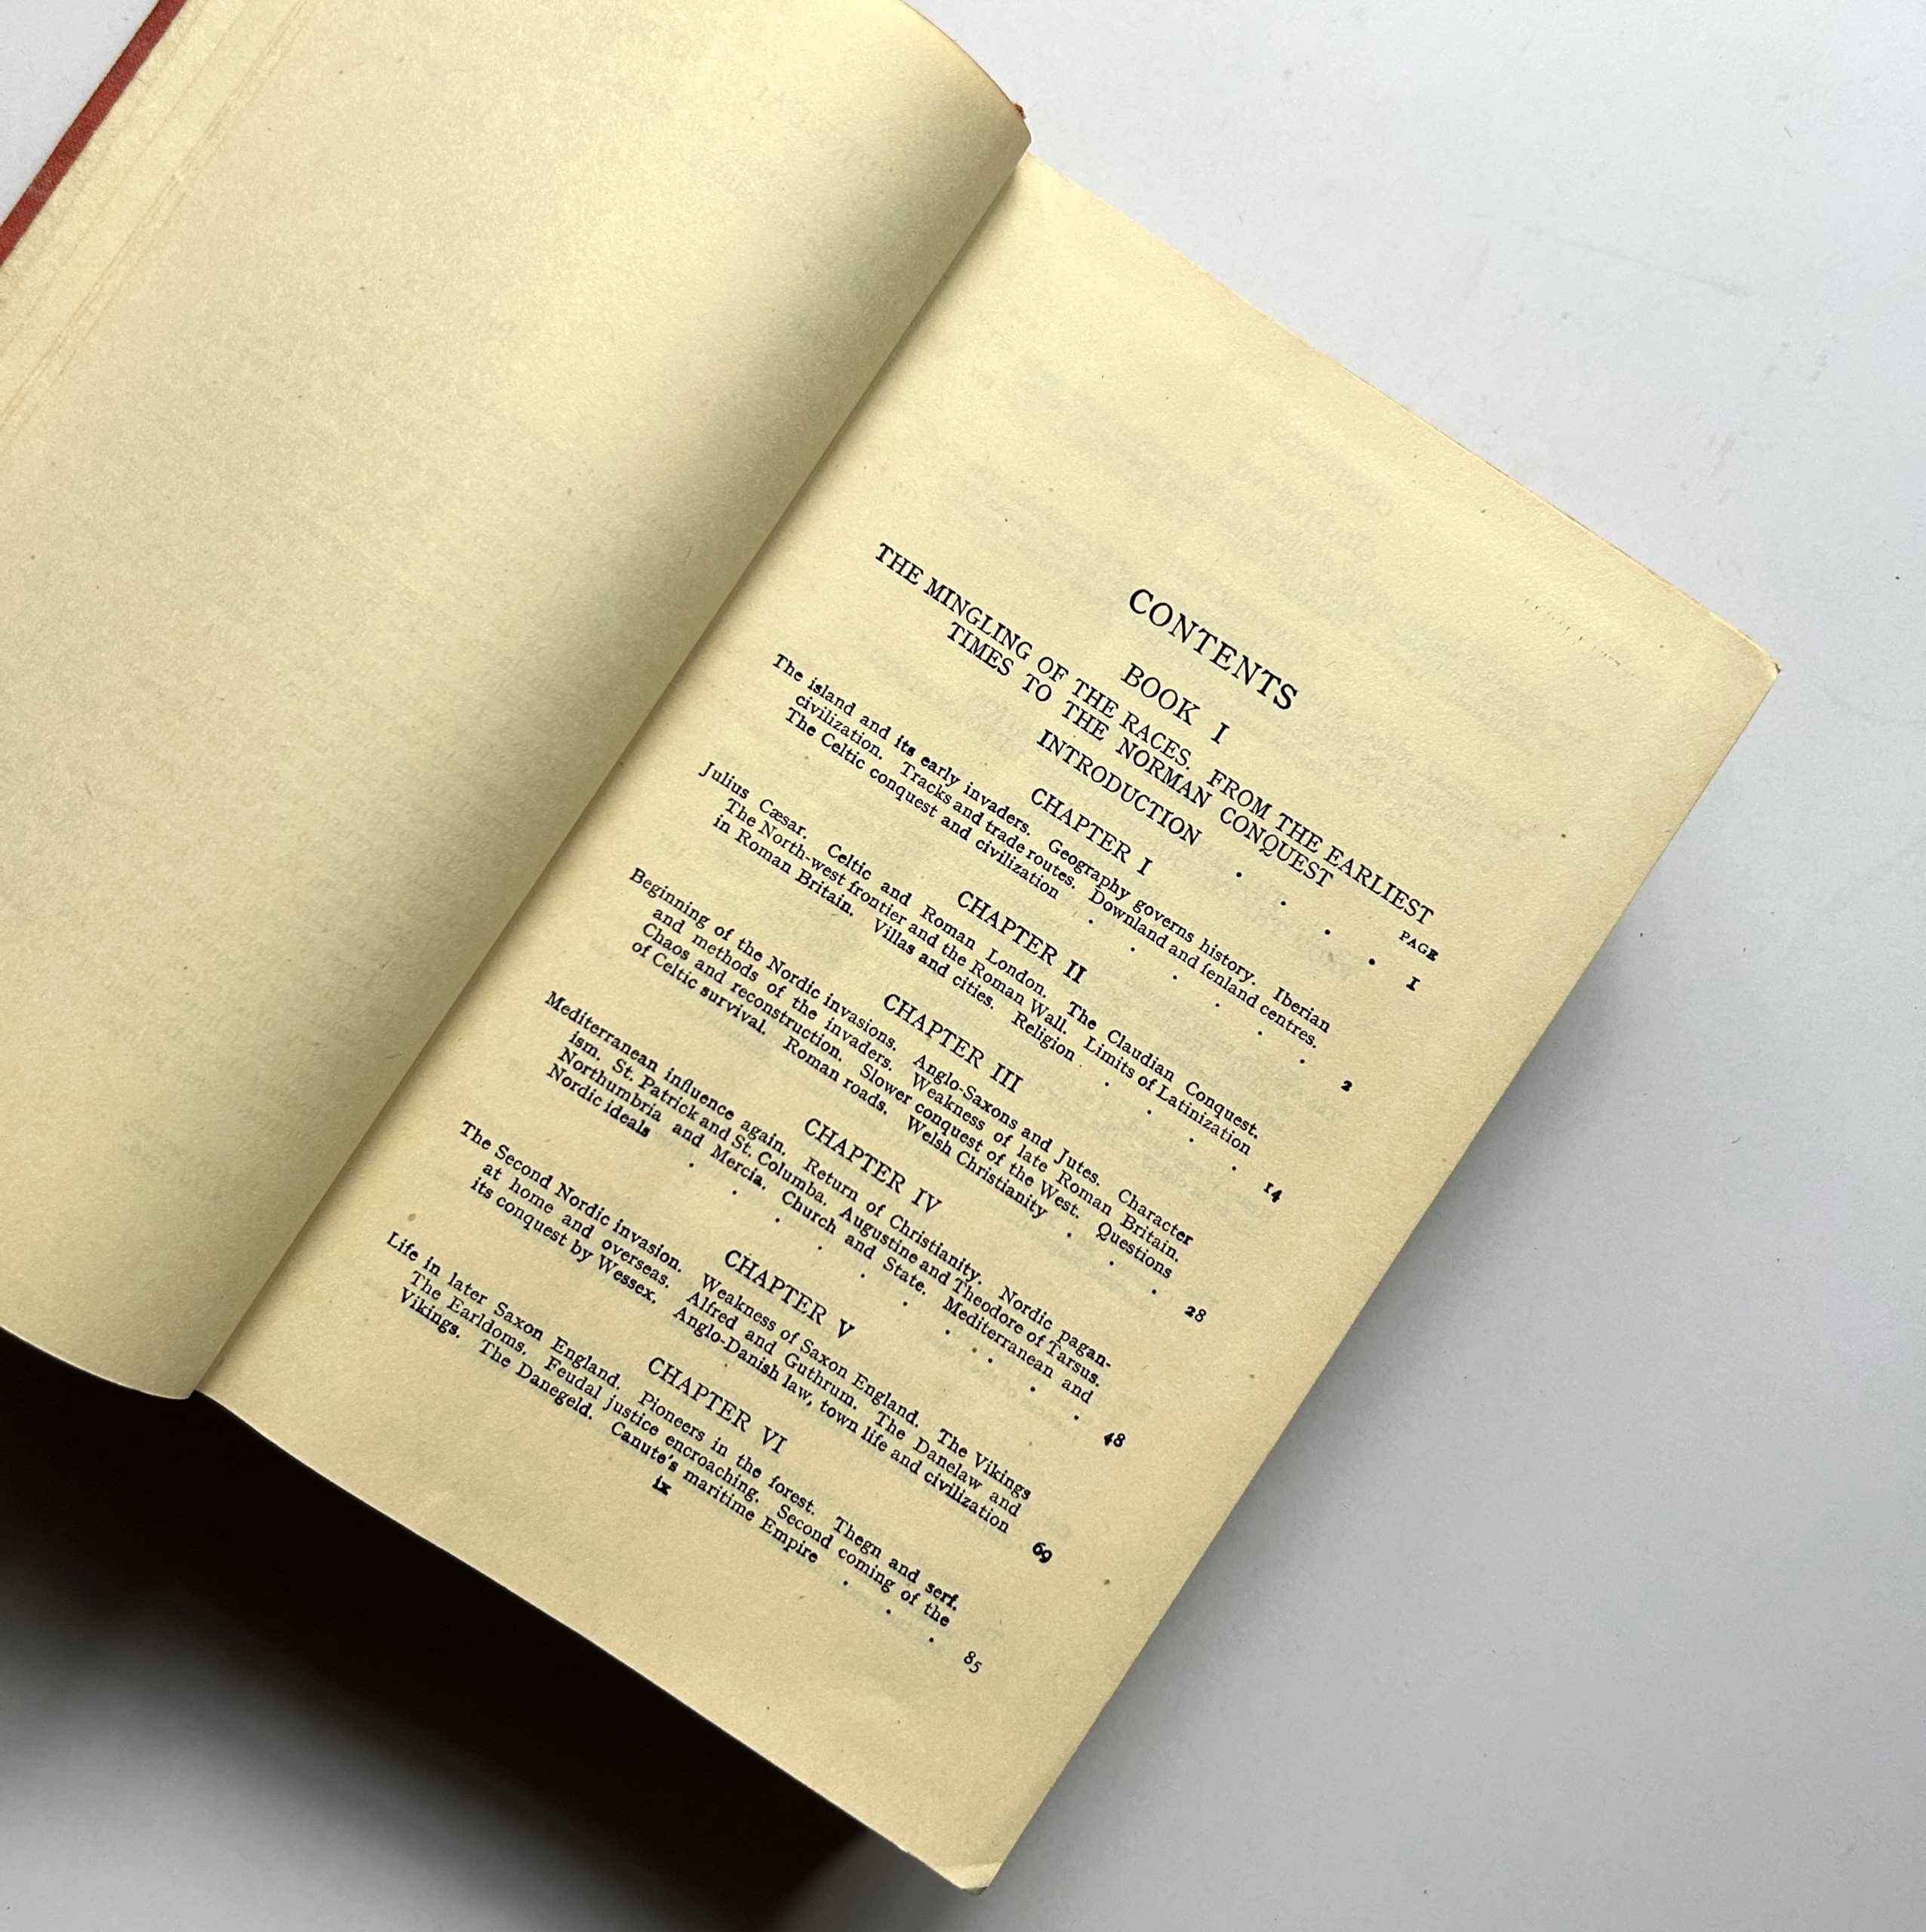 CONTENTS
BOOK I
THE MINGLING OF THE RACES. FROM THE EARLIEST
TIMES TO THE NORMAN CONQUEST
PAGE
INTRODUCTION . . . . 1
CHAPTER I
The island and its early invaders. Geography governs history. Iberian
civilization. Tracks and trade routes. Downland and fenland centres.
The Celtic conquest and civilization . . . . . . 2
CHAPTER II
Julius Cæsar. Celtic and Roman London. The Claudian Conquest.
The North-west frontier and the Roman Wall. Limits of Latinization
in Roman Britain. Villas and cities. Religion . . . . 14
CHAPTER III
Beginning of the Nordic invasions. Anglo-Saxons and Jutes. Character
and methods of the invaders. Weakness of late Roman Britain.
Chaos and reconstruction. Slower conquest of the West. Questions
of Celtic survival. Roman roads. Welsh Christianity . . . 28
CHAPTER IV
Mediterranean influence again. Return of Christianity. Nordic pagan-
ism. St. Patrick and St. Columba. Augustine and Theodore of Tarsus.
Northumbria and Mercia. Church and State. Mediterranean and
Nordic ideals . . . . . . . . . . 48
CHAPTER V
The Second Nordic invasion. Weakness of Saxon England. The Vikings
at home and overseas. Alfred and Guthrum. The Danelaw and
its conquest by Wessex. Anglo-Danish law, town life and civilization 69
CHAPTER VI
Life in later Saxon England. Pioneers in the forest. Thegn and serf.
The Earldoms. Feudal justice encroaching. Second coming of the
Vikings. The Danegeld. Canute's maritime Empire . . . 85
ix